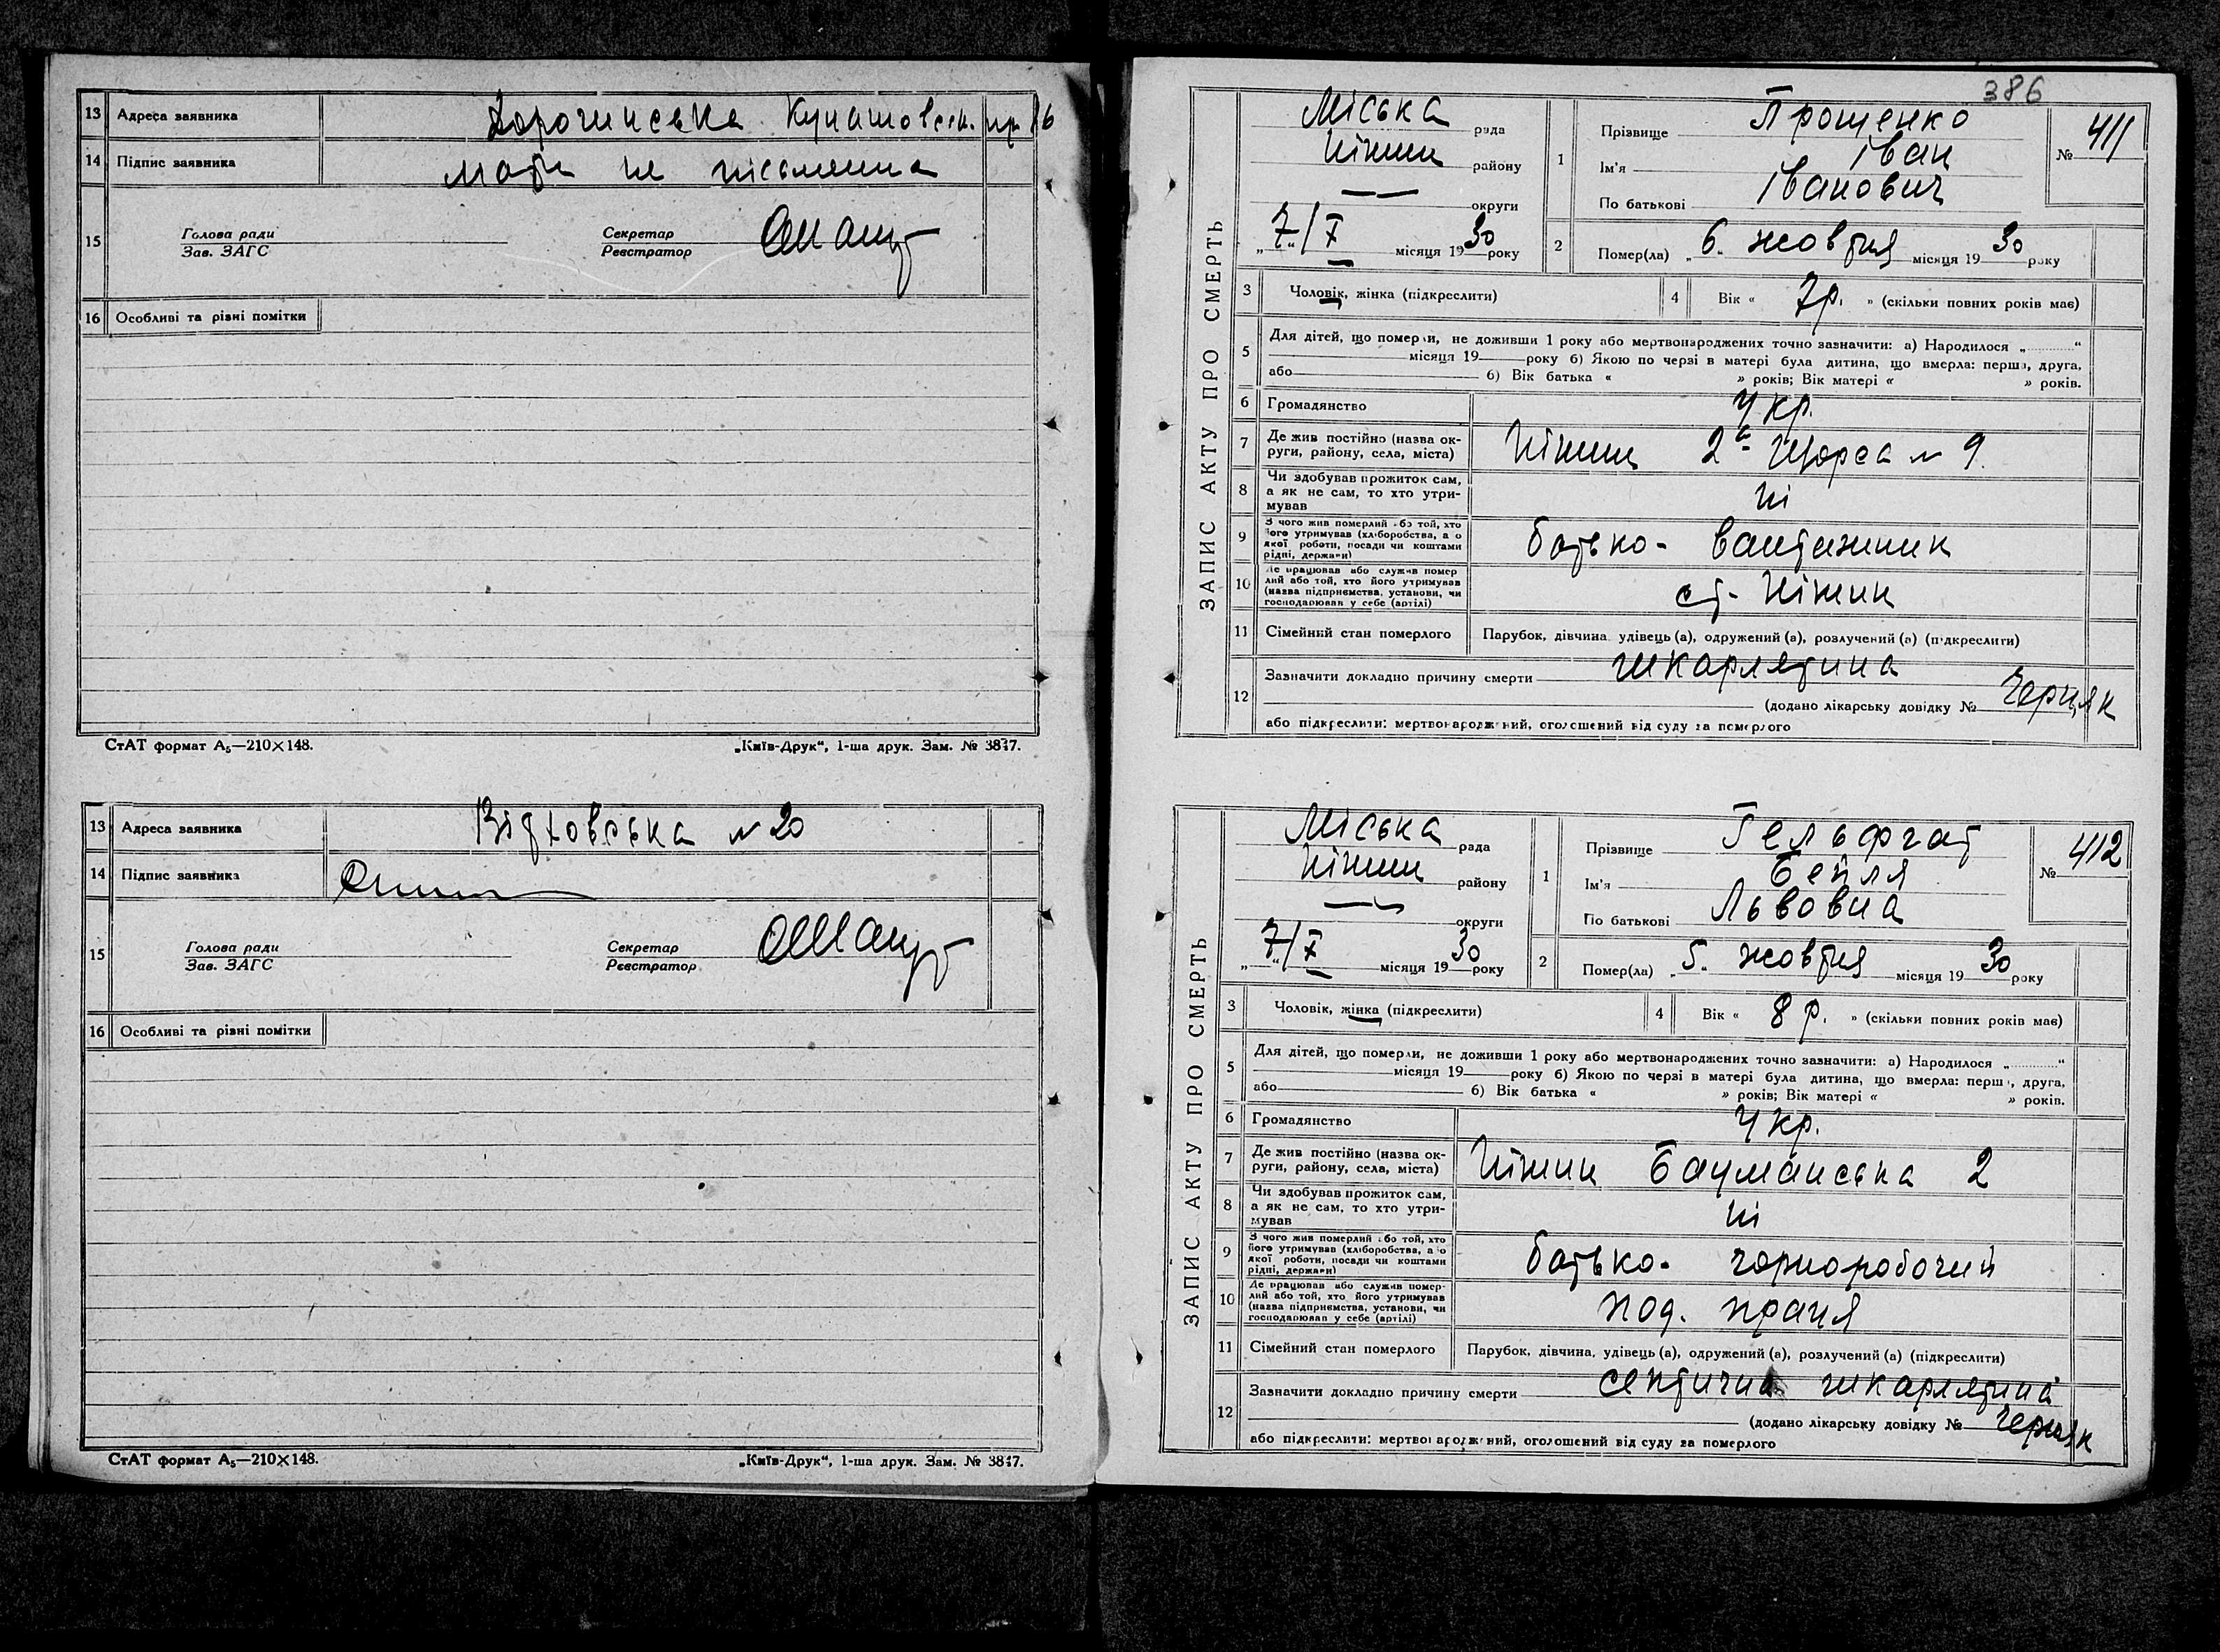 13 Адреса заявника
14 Підпис заявника мати не письменна
15 Голова ради Секретар
Зав. ЗАГС Реєстратор
16 Особливі та різні помітки
СтАТ формат А₅—210×148. „Київ-Друк“, 1-ша друк. Зам. № 3847.
13 Адреса заявника № 20
14 Підпис заявника
15 Голова ради Секретар
Зав. ЗАГС Реєстратор
16 Особливі та різні помітки
СтАТ формат А₅—210×148. „Київ-Друк“, 1-ша друк. Зам. № 3847.
386
ЗАПИС АКТУ ПРО СМЕРТЬ
Міська рада
Ніжин району
— — округи
„7“/X місяця 1930 року
1 Прізвище Прощенко
Ім'я Іван
По батькові Іванович
№ 411
2 Помер(ла) „6“ жовтня місяця 1930 року
3 Чоловік, жінка (підкреслити) 4 Вік « 7р. » (скільки повних років має)
5 Для дітей, що померли, не доживши 1 року або мертвонароджених точно зазначити: а) Народилося „ “
місяця 19 року б) Якою по черзі в матері була дитина, що вмерла: перша, друга,
або б) Вік батька « » років; Вік матері « » років.
6 Громадянство Укр.
7 Де жив постійно (назва ок-
руги, району, села, міста) Ніжин 2а Щорса № 9.
8 Чи здобував прожиток сам,
а як не сам, то хто утри-
мував ні
9 З чого жив померлий або той, хто
його утримував (хліборобства, а о
якої роботи, посади чи коштами
рідні, держави) батько - вантажник
10 Де працював або служив помер
лий або той, хто його утримував
(назва підприємства, установи, чи
господарював у себе (артілі) ст. Ніжин
11 Сімейний стан померлого Парубок, дівчина, удівець (а), одружений (а), розлучений (а) (підкреслити)
12 Зазначити докладно причину смерти шкарлятина
(додано лікарську довідку № Черняк
або підкреслити: мертвонароджений, оголошений від суду за померлого
ЗАПИС АКТУ ПРО СМЕРТЬ
Міська рада
Ніжин району
— — округи
„7“/X місяця 1930 року
1 Прізвище Гельфгат
Ім'я Бейля
По батькові Львовна
№ 412
2 Помер(ла) „5“ жовтня місяця 1930 року
3 Чоловік, жінка (підкреслити) 4 Вік « 8 р. » (скільки повних років має)
5 Для дітей, що померли, не доживши 1 року або мертвонароджених точно зазначити: а) Народилося „ “
місяця 19 року б) Якою по черзі в матері була дитина, що вмерла: перш , друга,
або б) Вік батька « » років; Вік матері « » років.
6 Громадянство Укр.
7 Де жив постійно (назва ок-
руги, району, села, міста) Ніжин Бауманська 2
8 Чи здобував прожиток сам,
а як не сам, то хто утри-
мував ні
9 З чого жив померлий або той, хто
його утримував (хліборобства, а о
якої роботи, посади чи коштами
рідні, держави) батько - чорноробочий
10 Де працював або служив помер-
лий або той, хто його утримував
(назва підприємства, установи, чи
господарював у себе (артілі) под. праця
11 Сімейний стан померлого Парубок, дівчина, удівець (а), одружений (а), розлучений (а) (підкреслити)
12 Зазначити докладно причину смерти септична шкарлятина
(додано лікарську довідку № Черняк
або підкреслити: мертвонароджений, оголошений від суду за померлого